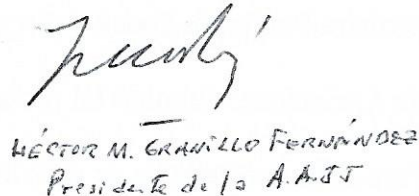 HÉCTOR M. GRANILLO FERNÁNDEZ
Presidente de la A.A.JJ